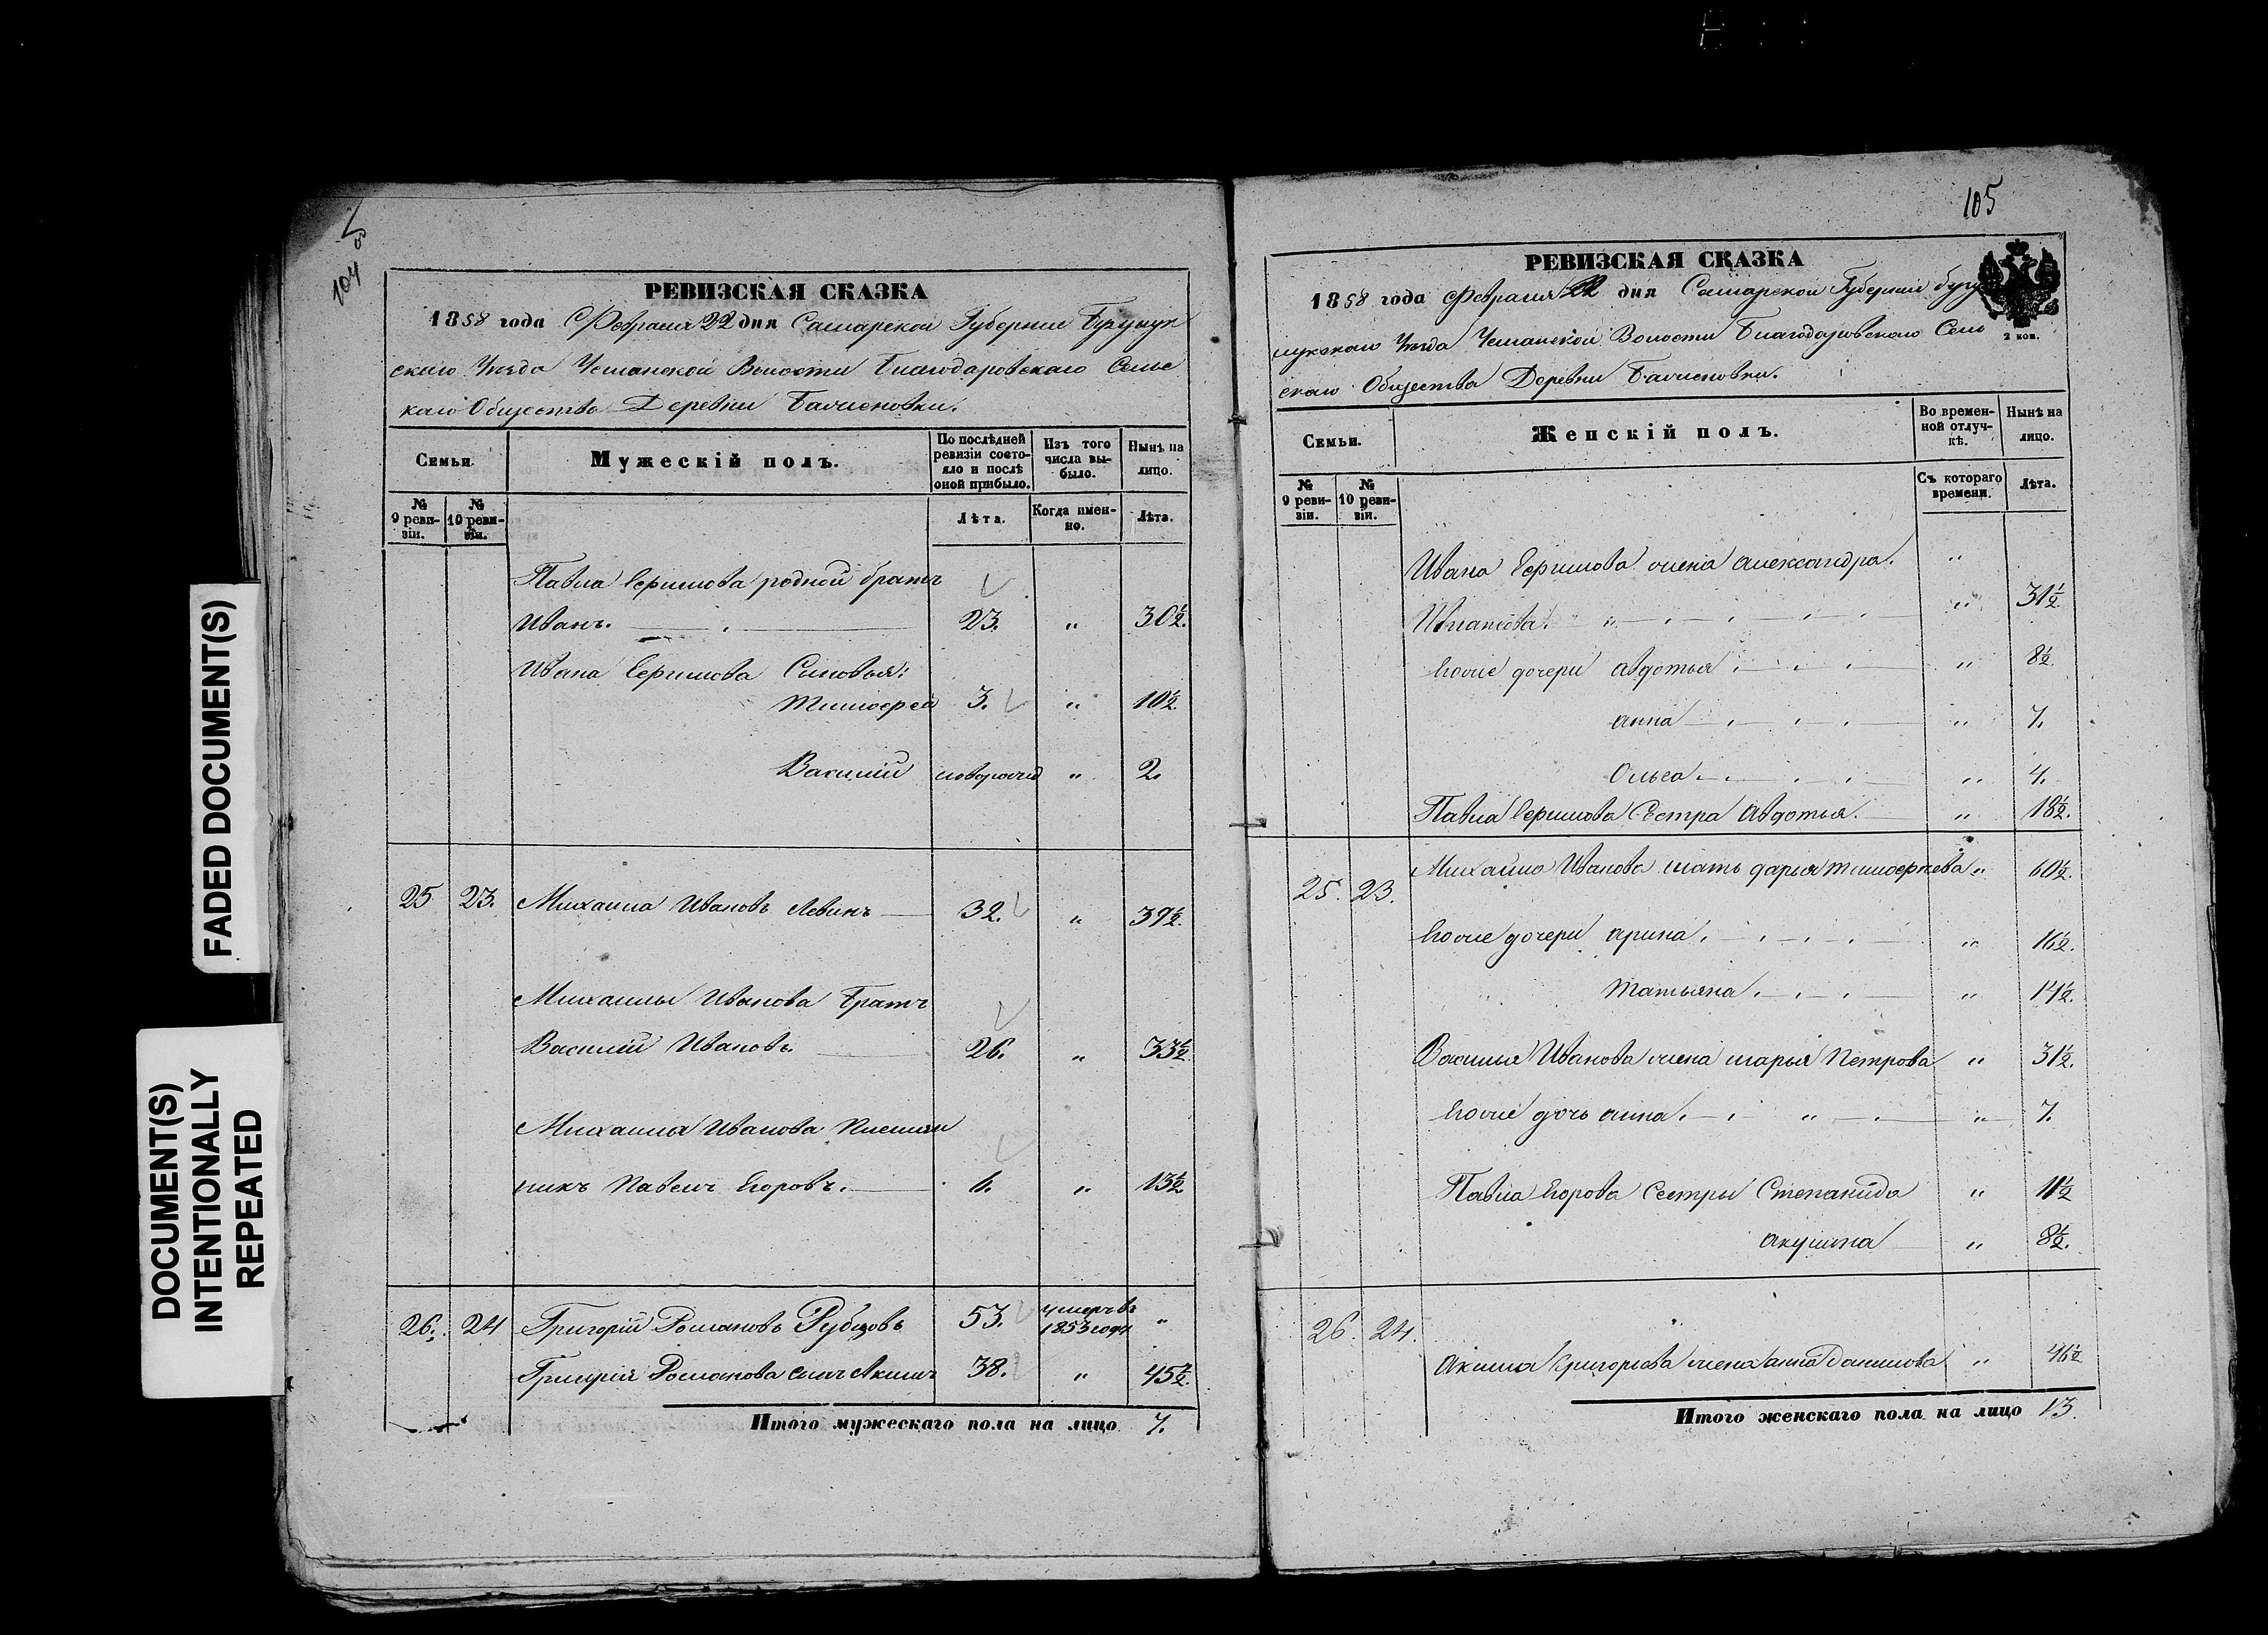 FADED DOCUMENT(S)
DOCUMENT(S)
INTENTIONALLY
REPEATED
104
РЕВИЗСКАЯ СКАЗКА
1858 года Февраля 22 дня Самарской Губернии Бугурук
скаго Уезда Волости Благодаровскаго Сельс
каго Общества Деревни
Семьи.
Мужескій полъ.
По послѣдней
ревизіи состо-
яло и послѣ
оной прибыло.
Изъ того
числа вы-
было.
Нынѣ на
лицо.
№
9 реви-
зіи.
№
10 реви-
зіи.
Лѣта.
Когда имен-
но.
Лѣта.
Павла Ефимова родной братъ
Иванъ. 23. " 30½.
Ивана Ефимова Сыновья:
Тимофей 3. " 10½.
Василий новорожд " 2.
25 23. Михаила Ивановъ Левинъ 32. " 39½.
Михаилы Иванова Братъ
Василий Ивановъ. 26. " 33½.
Михаилы Иванова племян
никъ Павелъ Егоровъ. 6. " 13½
26. 24 Григорій Романовъ Рубцовъ 53. умеръ въ 1853 году "
Григорія Романова сынъ Акимъ 38. " 45½.
Итого мужескаго пола на лицо 7.
105
РЕВИЗСКАЯ СКАЗКА
1858 года Февраля 22 дня Самарской Губерніи Бугу
Уезда Волости Благодаровскаго Сель
скаго Общества Деревни
2 коп.
Семьи.
Женскій полъ.
Во времен-
ной отлуч-
кѣ.
Нынѣ на
лицо.
№
9 реви-
зіи.
№
10 реви-
зіи.
Съ котораго
времени.
Лѣта.
Ивана Ефимова жена Александра. "
" 31½.
Егоже дочери Авдотья " 8½
Анна " 7.
Ольга " 4.
Павла Ефимова Сестра Авдотья. " 18½.
25. 23. Михайла Иванова мать Дарья Тимофеева " 60½.
Егоже дочери Арина. " 16½.
Татьяна " 14½.
Василья Иванова жена Марья Петрова " 31½.
Егоже дочь Анна. " 7.
Павла Егорова Сестры Степанида " 11½
Акулина " 8½.
26. 24. "
Акима Григорьева жена Анна Данилова " 46½
Итого женскаго пола на лицо 13.